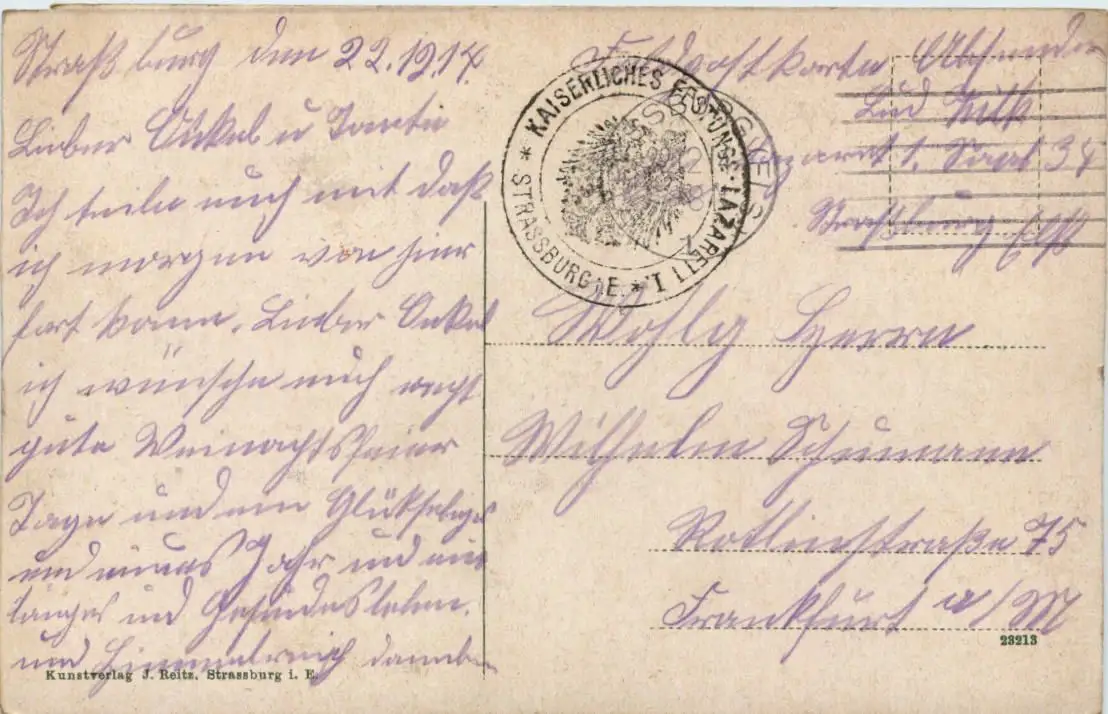 Straßburg den 22.12.14.
Lieber Onkel u Tante
Ich teile euch mit daß
ich morgen von hier
fort komme. Lieber Onkel
ich wünsche euch recht
gute Weinachtsfeier
Tage und ein Glükseliges
und neues Jahr und ein
langes und Gesundes leben.
und Himmelreich daneben
Kunstverlag J. Reitz, Strassburg i. E.
Feldpostkarte Absender
Lud
Lazarett 1. Saal 34
Straßburg Els
* KAISERLICHES FESTUNGS-LAZARETT I. * STRASSBURG i. E.
Wohlg Herrn
Wilhelm Schumann
Rotlintstraße 75
Frankfurt a/M
23213